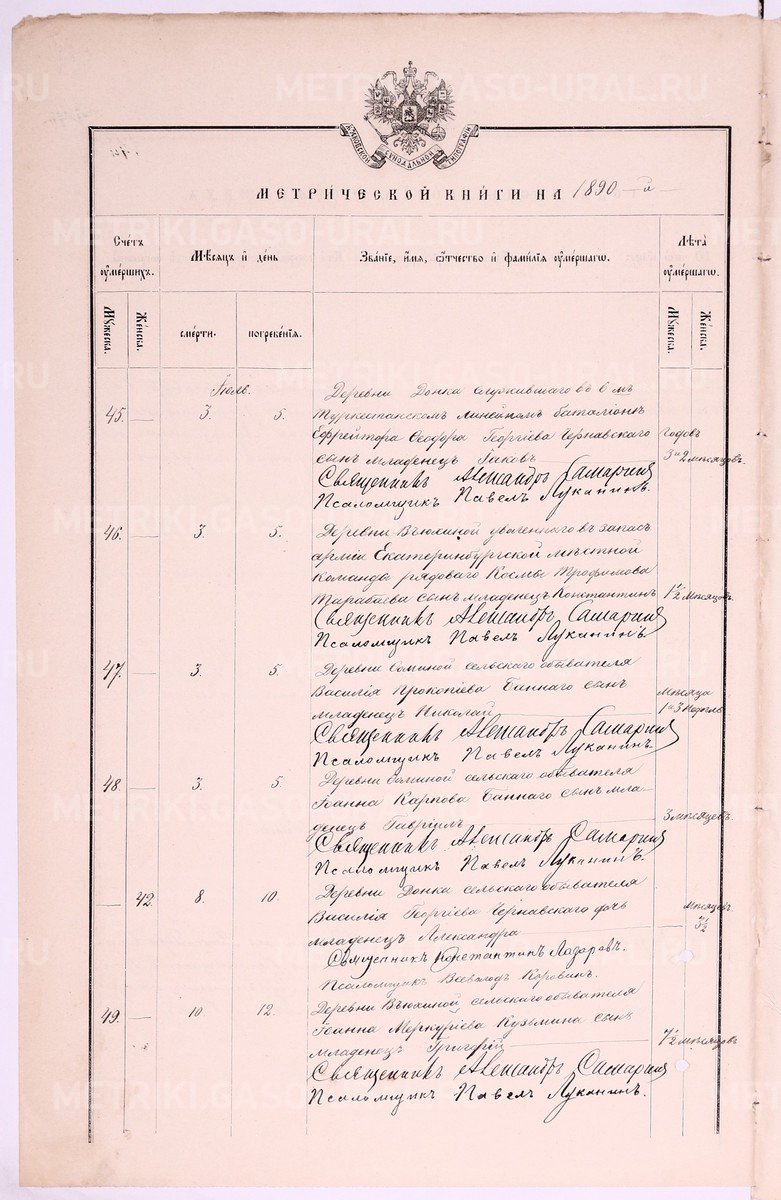 METRIKI.GASO-URAL.RU
МОСКОВСКОЙ СѴНОДАЛЬНОЙ ТИПОГРАФІИ
МЕТРИЧЕСКОЙ КНИГИ НА 1890 й
Счетъ ѹмершихъ.
Мѣсяцъ и день
Званіе, имя, ѻтчество и фамилія ѹмершагѡ.
Лѣта ѹмершагѡ.
Мужеска.
Женска.
смерти.
погребенія.
Мужеска.
Женска.
Іюль.
Деревни Донка служившаго въ 6 мъ
45. — 3. 5. Туркестанскомъ линейномъ баталіонѣ
Ефрейтора Ѳеодора Георгіева Чернавскаго Годовъ
сынъ младенецъ Іаковъ 3 и 2 мѣсяцовъ.
Священникъ Александръ Самаринъ
Псаломщикъ Павелъ Луканинъ.
46. — 3. 5. Деревни Вьюхиной уволеннаго въ запасъ
арміи Екатеринбургской мѣстной
команды рядоваго Космы Трофимова
Тарабаева сынъ младенецъ Константинъ 1½ мѣсяцовъ.
Священникъ Александръ Самаринъ
Псаломщикъ Павелъ Луканинъ.
47. — 3. 5. Деревни сельскаго обывателя
Василія Прокопіева Баннаго сынъ Мѣсяца
младенецъ Николай 1 и 3 недѣль
Священникъ Александръ Самаринъ
Псаломщикъ Павелъ Луканинъ.
48. — 3. 5. Деревни сельскаго обывателя
Іоанна Карпова Баннаго сынъ мла-
денецъ Гавріилъ 3 мѣсяцевъ.
Священникъ Александръ Самаринъ
Псаломщикъ Павелъ Луканинъ.
— 42. 8. 10. Деревни Донка сельскаго обывателя
Василія Георгіева Чернавскаго дочь мѣсяцевъ
младенецъ Александра 3½
Священникъ Константинъ Лазаревъ.
Псаломщикъ Всеволодъ Коровинъ.
49. — 10. 12. Деревни Вьюхиной сельскаго обывателя
Іоанна Меркуріева Кузьмина сынъ
младенецъ Григорій 7½ мѣсяцовъ
Священникъ Александръ Самаринъ
Псаломщикъ Павелъ Луканинъ.